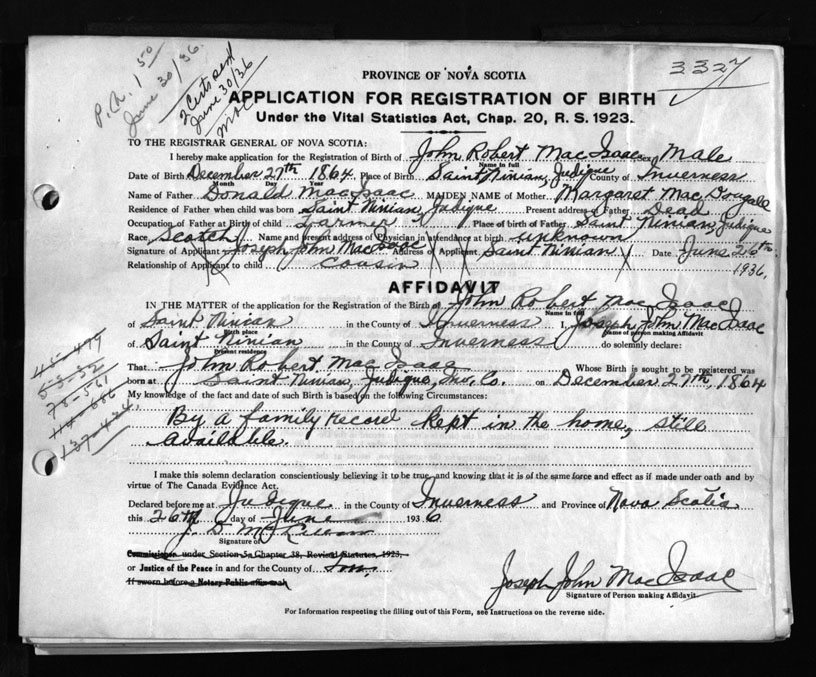 P.R. 1 50
June 30/36.
2 Certs sent
June 30/36
3327
PROVINCE OF NOVA SCOTIA
APPLICATION FOR REGISTRATION OF BIRTH
Under the Vital Statistics Act, Chap. 20, R. S. 1923.
TO THE REGISTRAR GENERAL OF NOVA SCOTIA:
I hereby make application for the Registration of Birth of John Robert Mac Isaac Sex Male
Name in full
Date of Birth December 27th 1864 Place of Birth Saint Ninian, Judique County of Inverness
Month Day Year
Name of Father Donald Mac Isaac MAIDEN NAME of Mother Margaret Mac Dougall
Residence of Father when child was born Saint Ninian, Judique Present address of Father Dead
Occupation of Father at Birth of child Farmer Place of birth of Father Saint Ninian, Judique
Race, Scotch Name and present address of Physician in attendance at birth unknown
Signature of Applicant Joseph John Mac Isaac Address of Applicant Saint Ninian Date June 26th
1936.
Relationship of Applicant to child Cousin
AFFIDAVIT
IN THE MATTER of the application for the Registration of the Birth of John Robert Mac Isaac
Name in full
of Saint Ninian in the County of Inverness I, Joseph John Mac Isaac
Birth place Name of person making Affidavit
of Saint Ninian in the County of Inverness do solemnly declare:
Present residence
That John Robert Mac Isaac Whose Birth is sought to be registered was
born at Saint Ninian, Judique, Inv. Co. on December 27th, 1864
My knowledge of the fact and date of such Birth is based on the following Circumstances:
By a family record kept in the home, still
available.
45-499
53-32
78-561
114-686
137-424
I make this solemn declaration conscientiously believing it to be true, and knowing that it is of the same force and effect as if made under oath and by
virtue of The Canada Evidence Act.
Declared before me at Judique in the County of Inverness and Province of Nova Scotia
this 26th day of June 1936
J. D.
Signature of
Commissioner under Section 5a Chapter 38, Revised Statutes, 1923,
or Justice of the Peace in and for the County of Inv.
If sworn before a Notary Public affix seal
Joseph John Mac Isaac
Signature of Person making Affidavit.
For Information respecting the filling out of this Form, see Instructions on the reverse side.